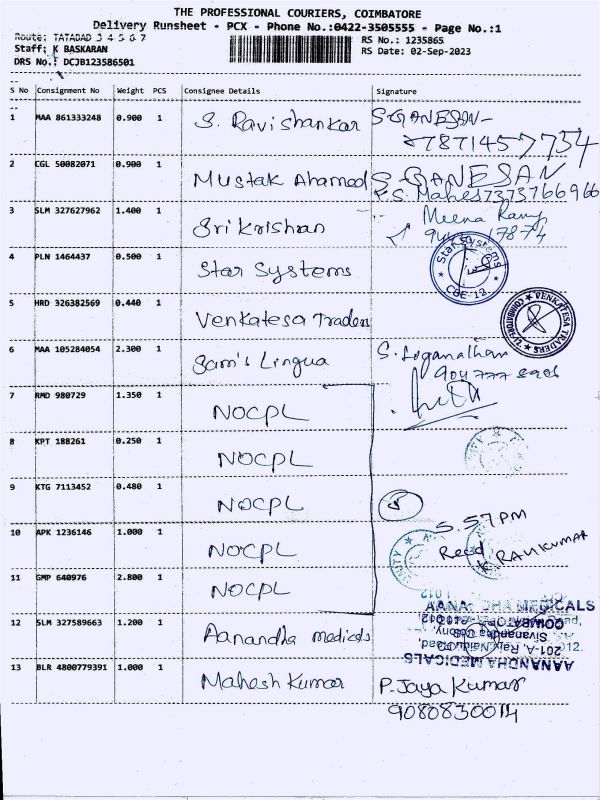 THE PROFESSIONAL COURIERS, COIMBATORE
Delivery Runsheet - PCX - Phone No.:0422-3505555 - Page No.:1
Route: TATABAD 3 4 5 6 7
RS No.: 1235865
Staff: K BASKARAN
RS Date: 02-Sep-2023
DRS No.: DCJB123586501
S No Consignment No Weight PCS Consignee Details Signature
1 MAA 861333248 0.900 1 S. Ravishankar S GANESAN-
7871457734
2 CGL 50082071 0.900 1 Mustak Ahamed S GANESAN
P.S. Mahes 7373766966
3 SLM 327627962 1.400 1 Sri Krishnan Meena
4 PLN 1464437 0.500 1 Star Systems
Star Systems
CBE-12
5 HRD 326382569 0.440 1 Venkatesa Traders
VENKATESA TRADERS
COIMBATORE
6 MAA 105284054 2.300 1 Sam's Lingua S. Loganathan
7 RMD 980729 1.350 1 NOCPL
8 KPT 188261 0.250 1 NOCPL
9 KTG 7113452 0.480 1 NOCPL 5
5.57 PM
10 APK 1236146 1.000 1 NOCPL Recd
RAVIKUMAR
11 GMP 640976 2.800 1 NOCPL
AANANDHA MEDICALS
12 SLM 327589663 1.200 1 Aanandha medicals
AANANDHA MEDICALS
13 BLR 4800779391 1.000 1 Mahesh Kumar P. Jaya Kumar
9080830014